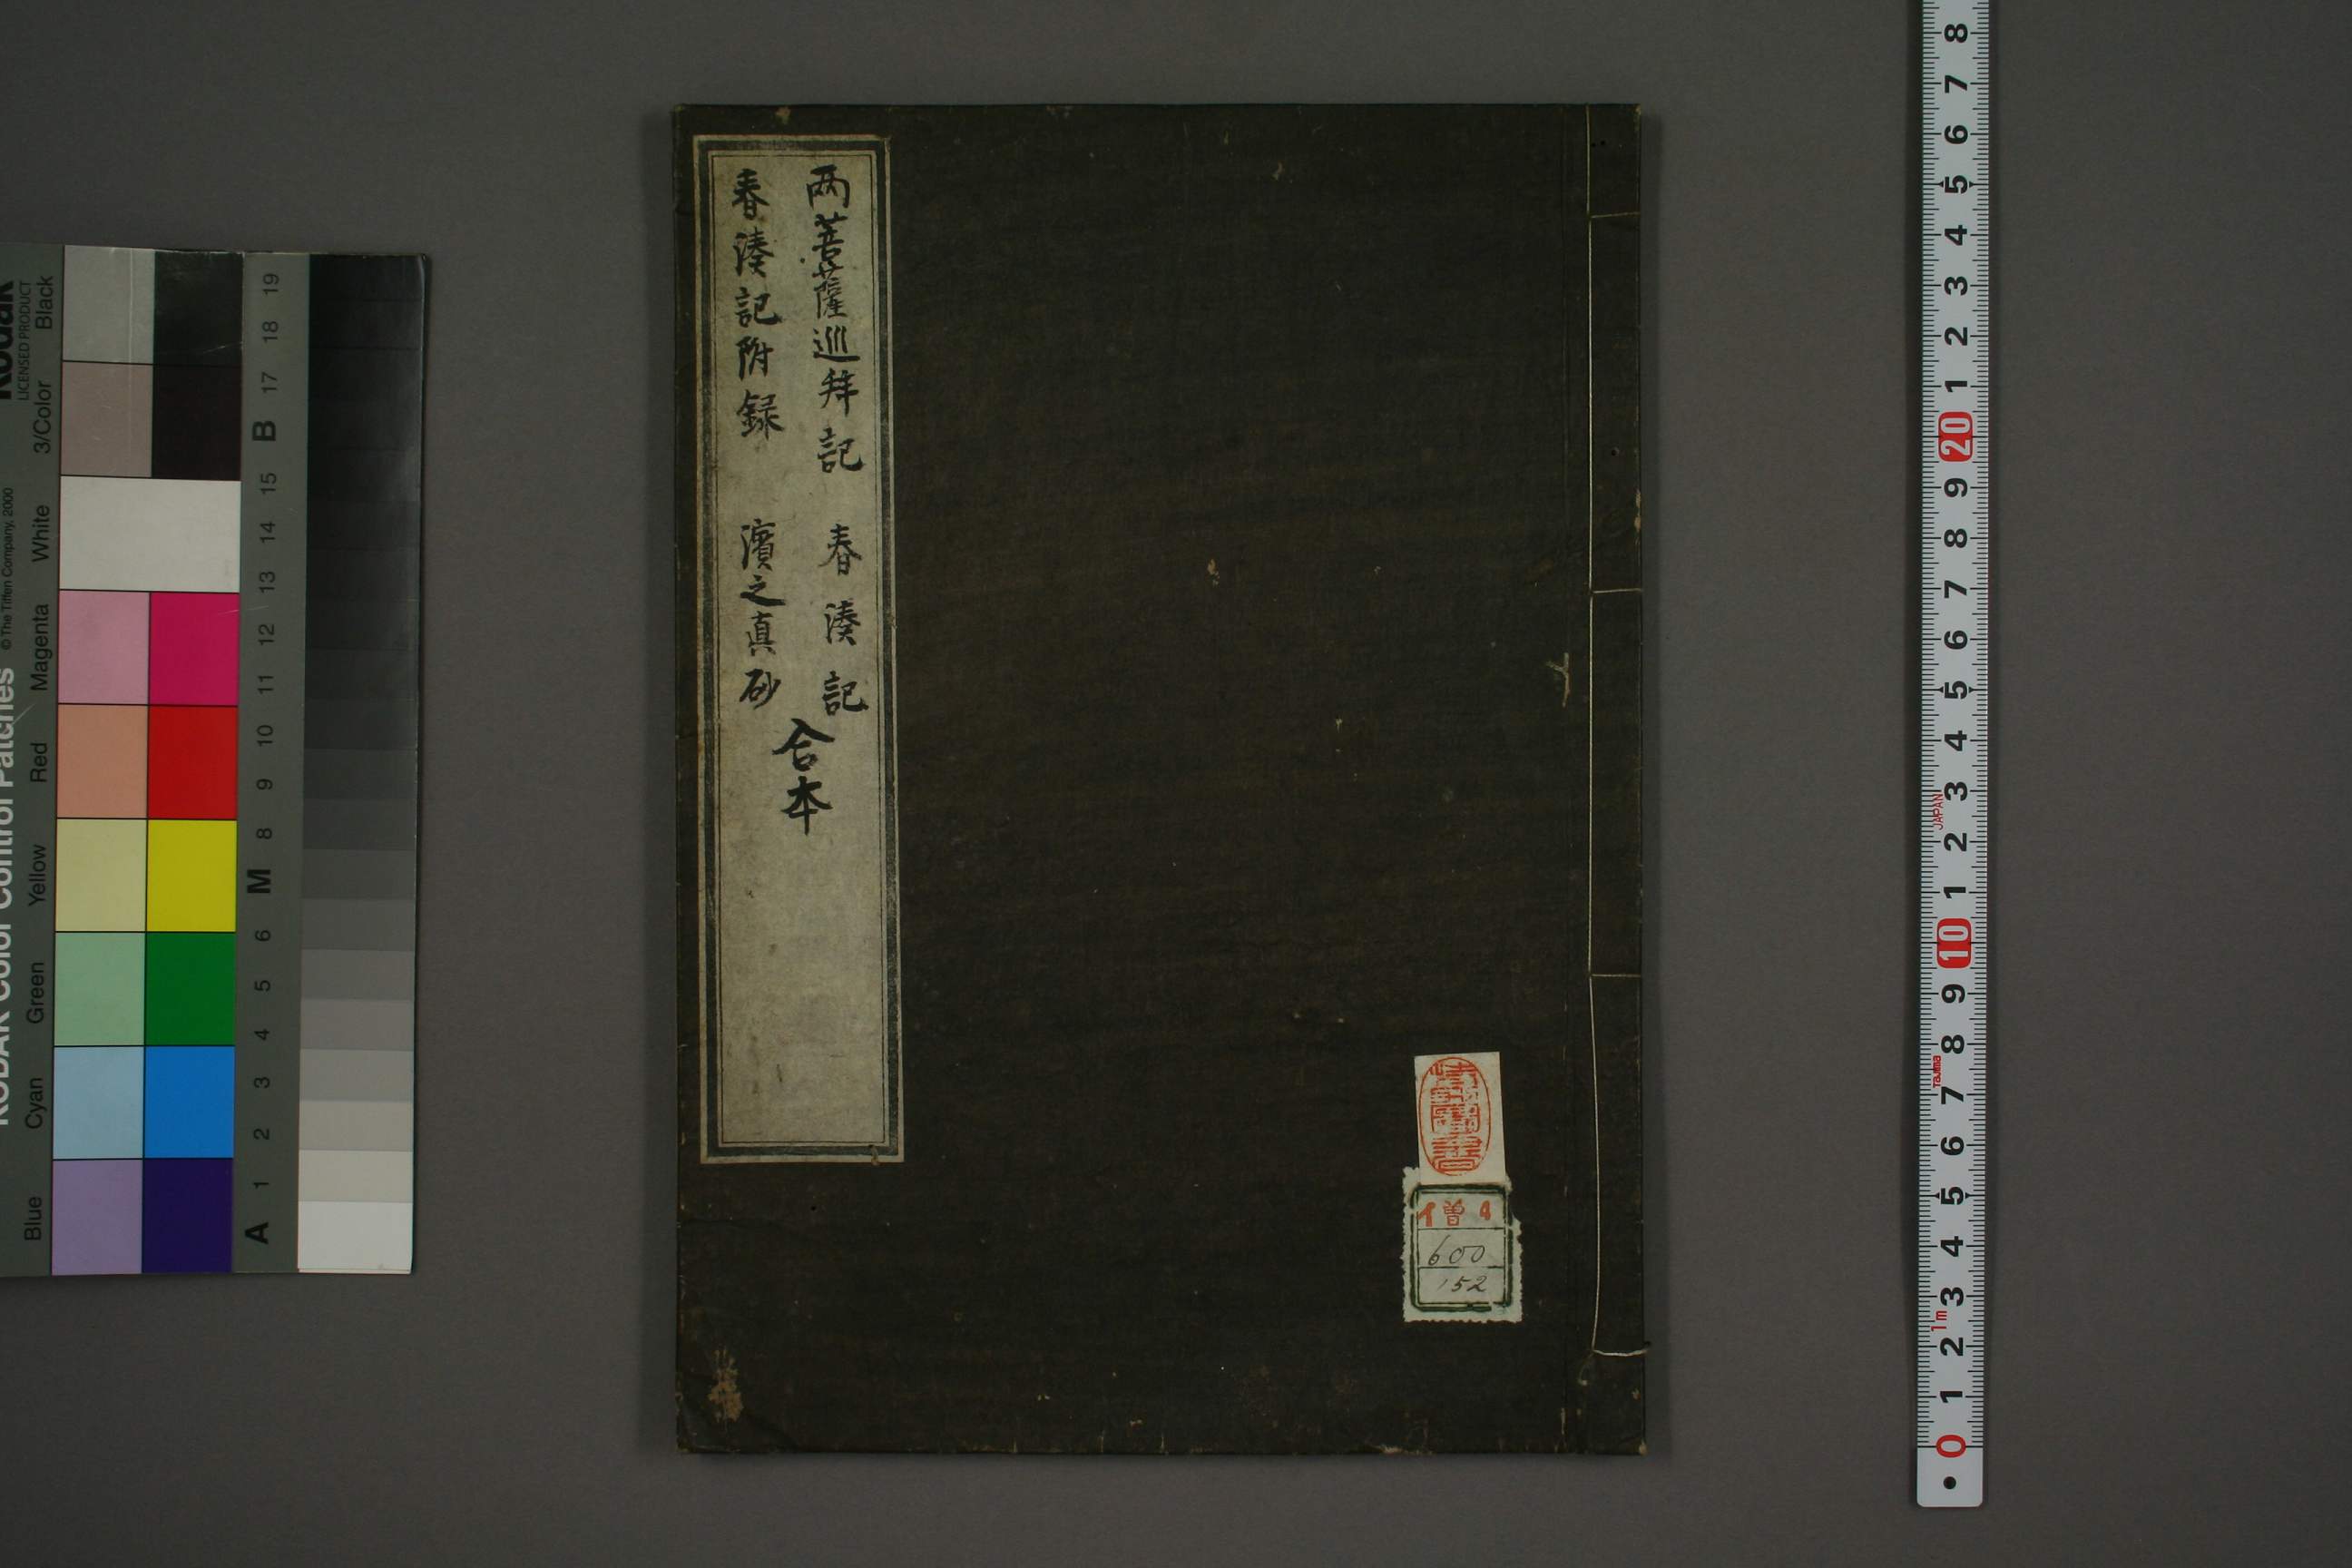 両菩薩巡拜記　春湊記
春湊記附録　濱之真砂
合本
僧4
600
152
KODAK Color Control Patches
© The Tiffen Company, 2000
Kodak
LICENSED PRODUCT
Blue Cyan Green Yellow Red Magenta White 3/Color Black
A 1 2 3 4 5 6 M 8 9 10 11 12 13 14 15 B 17 18 19
0 1 2 3 4 5 6 7 8 9 10 1 2 3 4 5 6 7 8 9 20 1 2 3 4 5 6 7 8
1m Tajima JAPAN